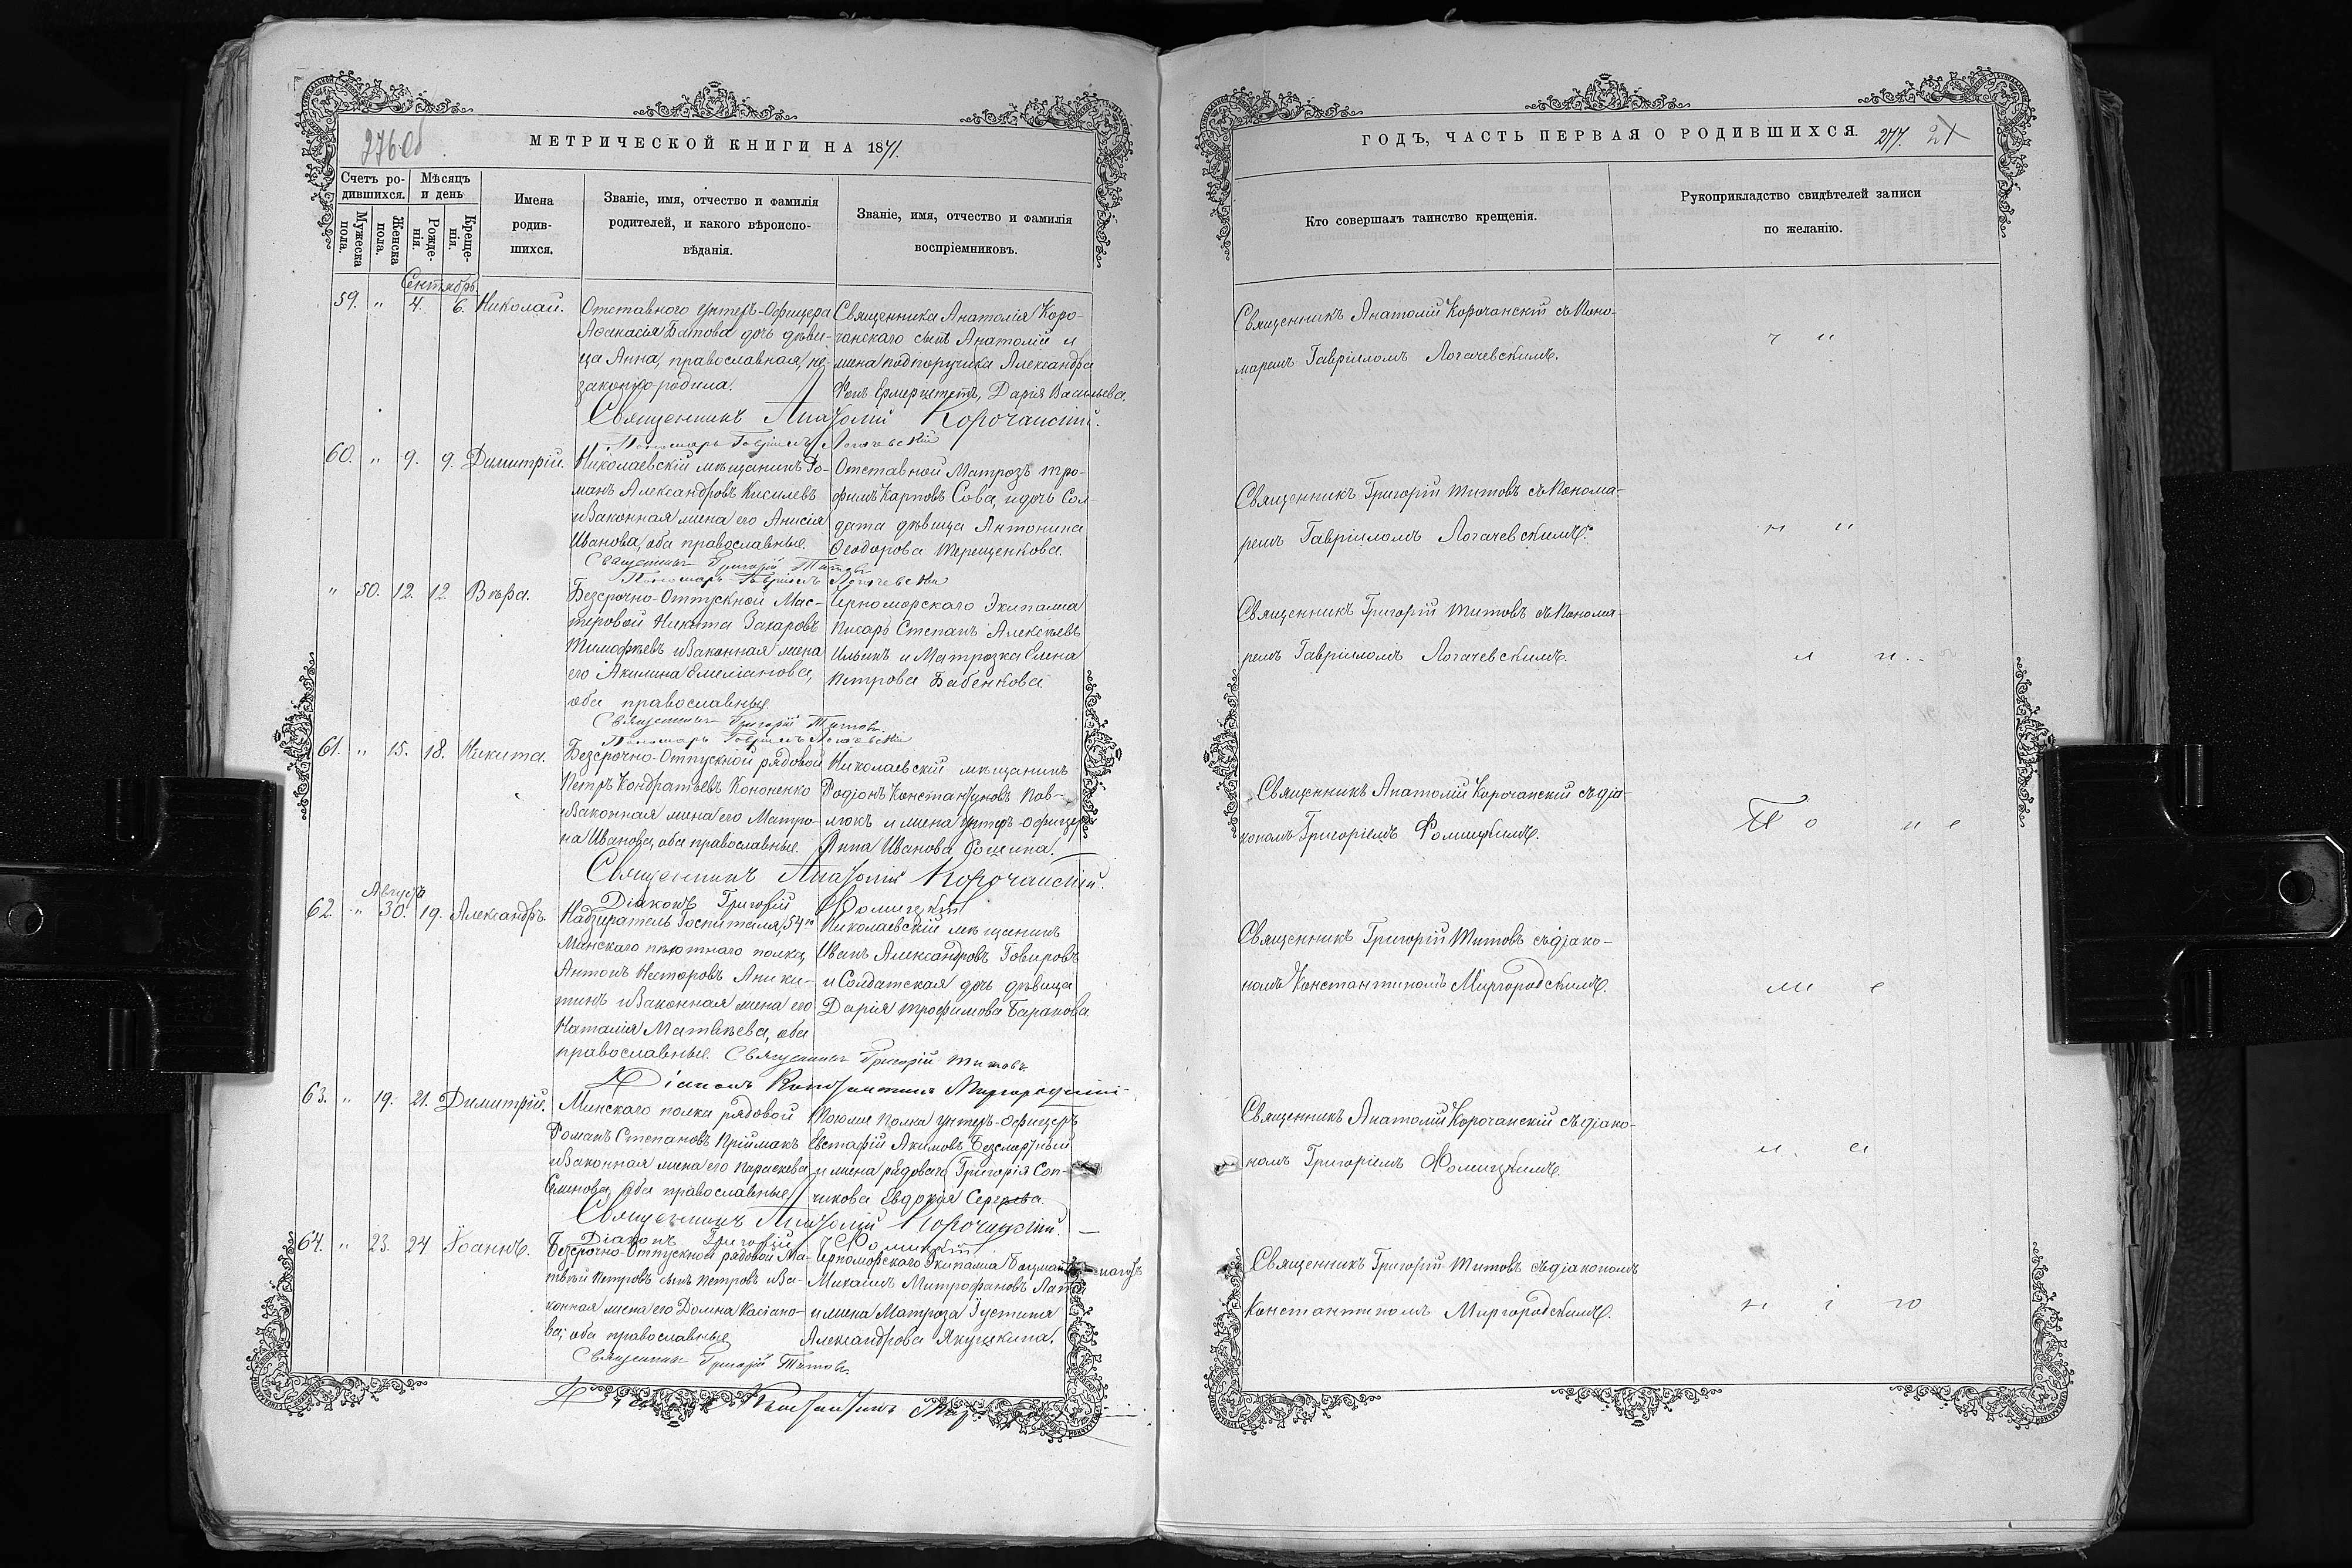 276 об
МЕТРИЧЕСКОЙ КНИГИ НА 1871.
Счетъ ро-
дившихся.
Мѣсяцъ
и день
Мужеска
пола.
Женска
пола.
Рожде-
нія.
Креще-
нія.
Имена
родив-
шихся.
Званіе, имя, отчество и фамилія
родителей, и какого вѣроиспо-
вѣданія.
Званіе, имя, отчество и фамилія
воспріемниковъ.
Сентябрь
59. " 4. 6. Николай.
Отставного Унтеръ-Офицера
Аѳанасія Батова дочь дѣви-
ца Анна, православная, не-
законно родила.
Священника Анатолія Коро-
чанскаго сынъ Анатолій и
жена подпоручика Александра
Дарія Васильева.
Священникъ Анатолій Корочанскій.
Пономарь Гавріилъ Логачевскій
60. " 9. 9. Димитрій.
Николаевскій мѣщанинъ Ро-
манъ Александровъ Киселевъ
и законная жена его Анисія
Иванова, оба православные.
Отставной Матрозъ Тро-
фимъ Карповъ Сова, и дочь Сол-
дата дѣвица Антонина
Ѳеодорова Терещенкова.
Священникъ Григорій Титовъ
Пономарь Гавріилъ Логачевскій
" 50. 12. 12. Вѣра.
Безсрочно-Отпускной Мас-
теровой Никита Захаровъ
Тимофѣевъ и законная жена
его Акилина Емеліанова,
оба православные.
Черноморскаго Экипажа
Писарь Степанъ Алексѣевъ
Ильинъ и Матрозка Елена
Петрова Бабенкова.
Священникъ Григорій Титовъ
Пономарь Гавріилъ Логачевскій
61. " 15. 18. Никита.
Безсрочно-Отпускной рядовой
Петръ Кондратьевъ Кононенко
и законная жена его Матро-
на Иванова, оба православные.
Николаевскій мѣщанинъ
Родіонъ Константиновъ Пав-
люкъ и жена Унтеръ-офицера
Анна Иванова
Священникъ Анатолій Корочанскій.
Діаконъ Григорій Фомицкій
Августъ
62. " 30. 19. Александръ.
Надзиратель Госпиталя, 54го
Минскаго пѣхотнаго полка,
Антонъ Несторовъ Аники-
тинъ и законная жена его
Наталія Матвѣева, оба
православные.
Николаевскій мѣщанинъ
Иванъ Александровъ Говировъ
и Солдатская дочь дѣвица
Дарія Трофимова Баранова
Священникъ Григорій Титовъ
Діаконъ Константинъ Миргородскій
63. " 19. 21. Димитрій.
Минскаго полка рядовой
Романъ Степановъ Приймакъ
и законная жена его Параскева
Семенова, Оба православные
Тогоже Полка Унтеръ-Офицеръ
Евстафій Акимовъ Безсмертный
и жена рядоваго Григорія Соп-
чикова Евдокія Сергѣева.
Священникъ Анатолій Корочанскій.
Діаконъ Григорій Фомицкій.
64. " 23. 24 Іоаннъ.
Безсрочно-Отпускной рядовой Ма-
твѣй Петровъ сынъ Петровъ и за-
конная жена его Домна Касіано-
ва; оба православные
Черноморскаго Экипажа
Михаилъ Митрофановъ
и жена Матроза Іустина
Александрова Якушкина.
Священникъ Григорій Титовъ
Константинъ
ГОДЪ, ЧАСТЬ ПЕРВАЯ О РОДИВШИХСЯ. 277.
Кто совершалъ таинство крещенія.
Рукоприкладство свидѣтелей записи
по желанію.
Священникъ Анатолій Корочанскій съ Поно-
маремъ Гавріиломъ Логачевскимъ.
Священникъ Григорій Титовъ съ Понома-
ремъ Гавріиломъ Логачевскимъ.
Священникъ Григорій Титовъ съ Понома-
ремъ Гавріиломъ Логачевскимъ.
Священникъ Анатолій Корочанскій съ діа-
кономъ Григоріемъ Фомицкимъ.
Священникъ Григорій Титовъ съ діако-
номъ Константиномъ Миргородскимъ.
Священникъ Анатолій Корочанскій съ діако-
номъ Григоріемъ Фомицкимъ.
Священникъ Григорій Титовъ съ діакономъ
Константиномъ Миргородскимъ.